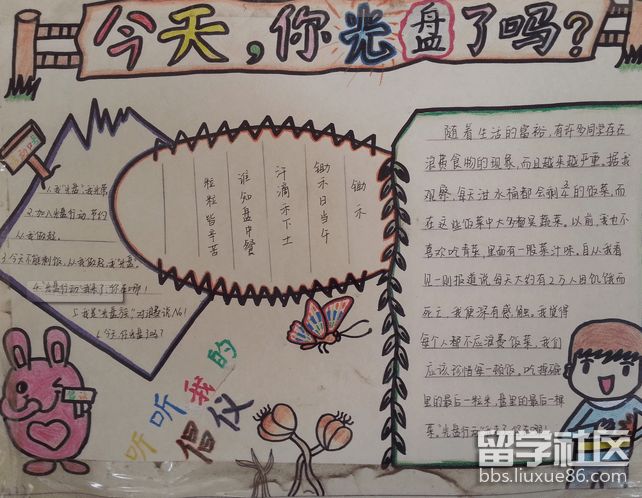 今天,你光盘了吗?
口号
1.我"光盘"我光荣
2.加入光盘行动,节约
从我做起
3.今天不能剩饭,从我做起,我"光盘"
4."光盘行动"我来了,你在哪!
5.我是"光盘族"对浪费说No!
6.今天,你光盘了吗?
锄禾
锄禾日当午
汗滴禾下土
谁知盘中餐
粒粒皆辛苦
听听我的
倡仪
随着生活的富裕,有许多同学存在
浪费食物的现象,而且越来越严重,据我
观察,每天泔水桶都会剩的饭菜,而
在这些饭菜中大多都是蔬菜,以前,我也不
喜欢吃青菜,里面有一股菜汁味,自从我看
见一则报道说每天大约有2万人因饥饿而
死亡,我便深有感触,我觉得
每个人都不应浪费饭菜,我们
应该珍惜每一顿饭,吃掉碗
里的最后一粒米,盘里的最后一种
菜,"光盘行动"
留学社区
bbs.liuxue86.com